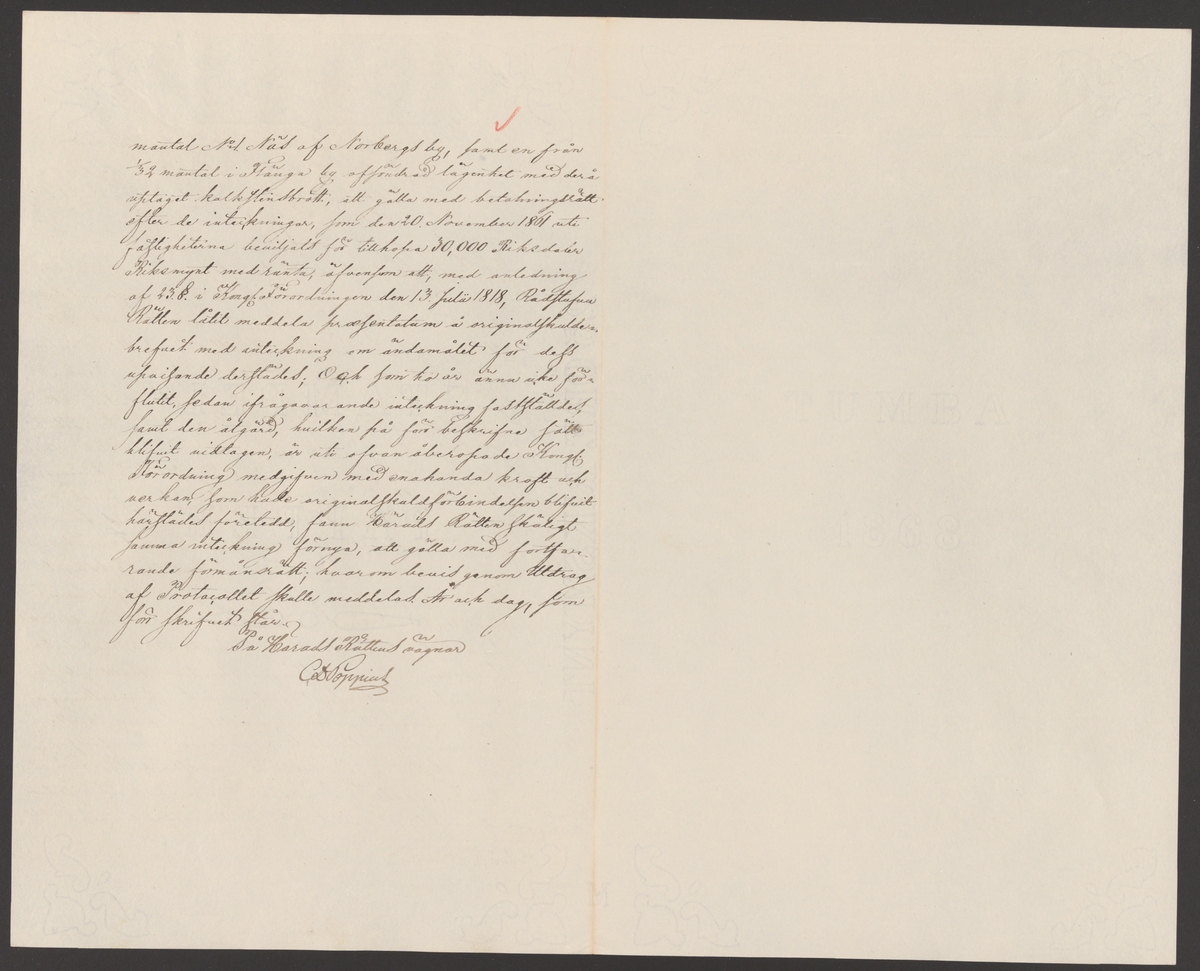 mantal No 1. Näs af Norbergs by, samt en från
1/32 mantal i Stånga by afsöndrad lägenhet med derå
uptaget kalkstensbrott; att gälla med betalningsrätt
efter de inteckningar, som den 20. November 1861 uti
fastigheterna beviljats för tillhopa 30,000 Riksdaler
Riksmynt med ränta, äfvensom att, med anledning
af 23. §. i Kongl. Förordningen den 13 Julii 1818, Rådstufvu
Rätten låtit meddela præsentatum å originalskulde-
brefvet med inteckning om ändamålet för dess
upvisande derstädes; Och som tio år ännu icke för-
flutit, sedan ifrågavarande inteckning fastställdes,
samt den åtgärd, hvilken på förr beskrifne sätt
blifvit vidtagen, är uti ofvanåberopade Kongl.
Förordning medgifven med enahanda kraft och
verkan, som hade originalskuldförbindelsen blifvit
härstädes företedd, fann Härads Rätten skäligt
samma inteckning förnya, att gälla med fortfa-
rande förmånsrätt; hvarom bevis genom Utdrag
af Protocollet skulle meddelas. År och dag, som
förr skrifvet står.
På Härads Rättens vägnar
Poppius